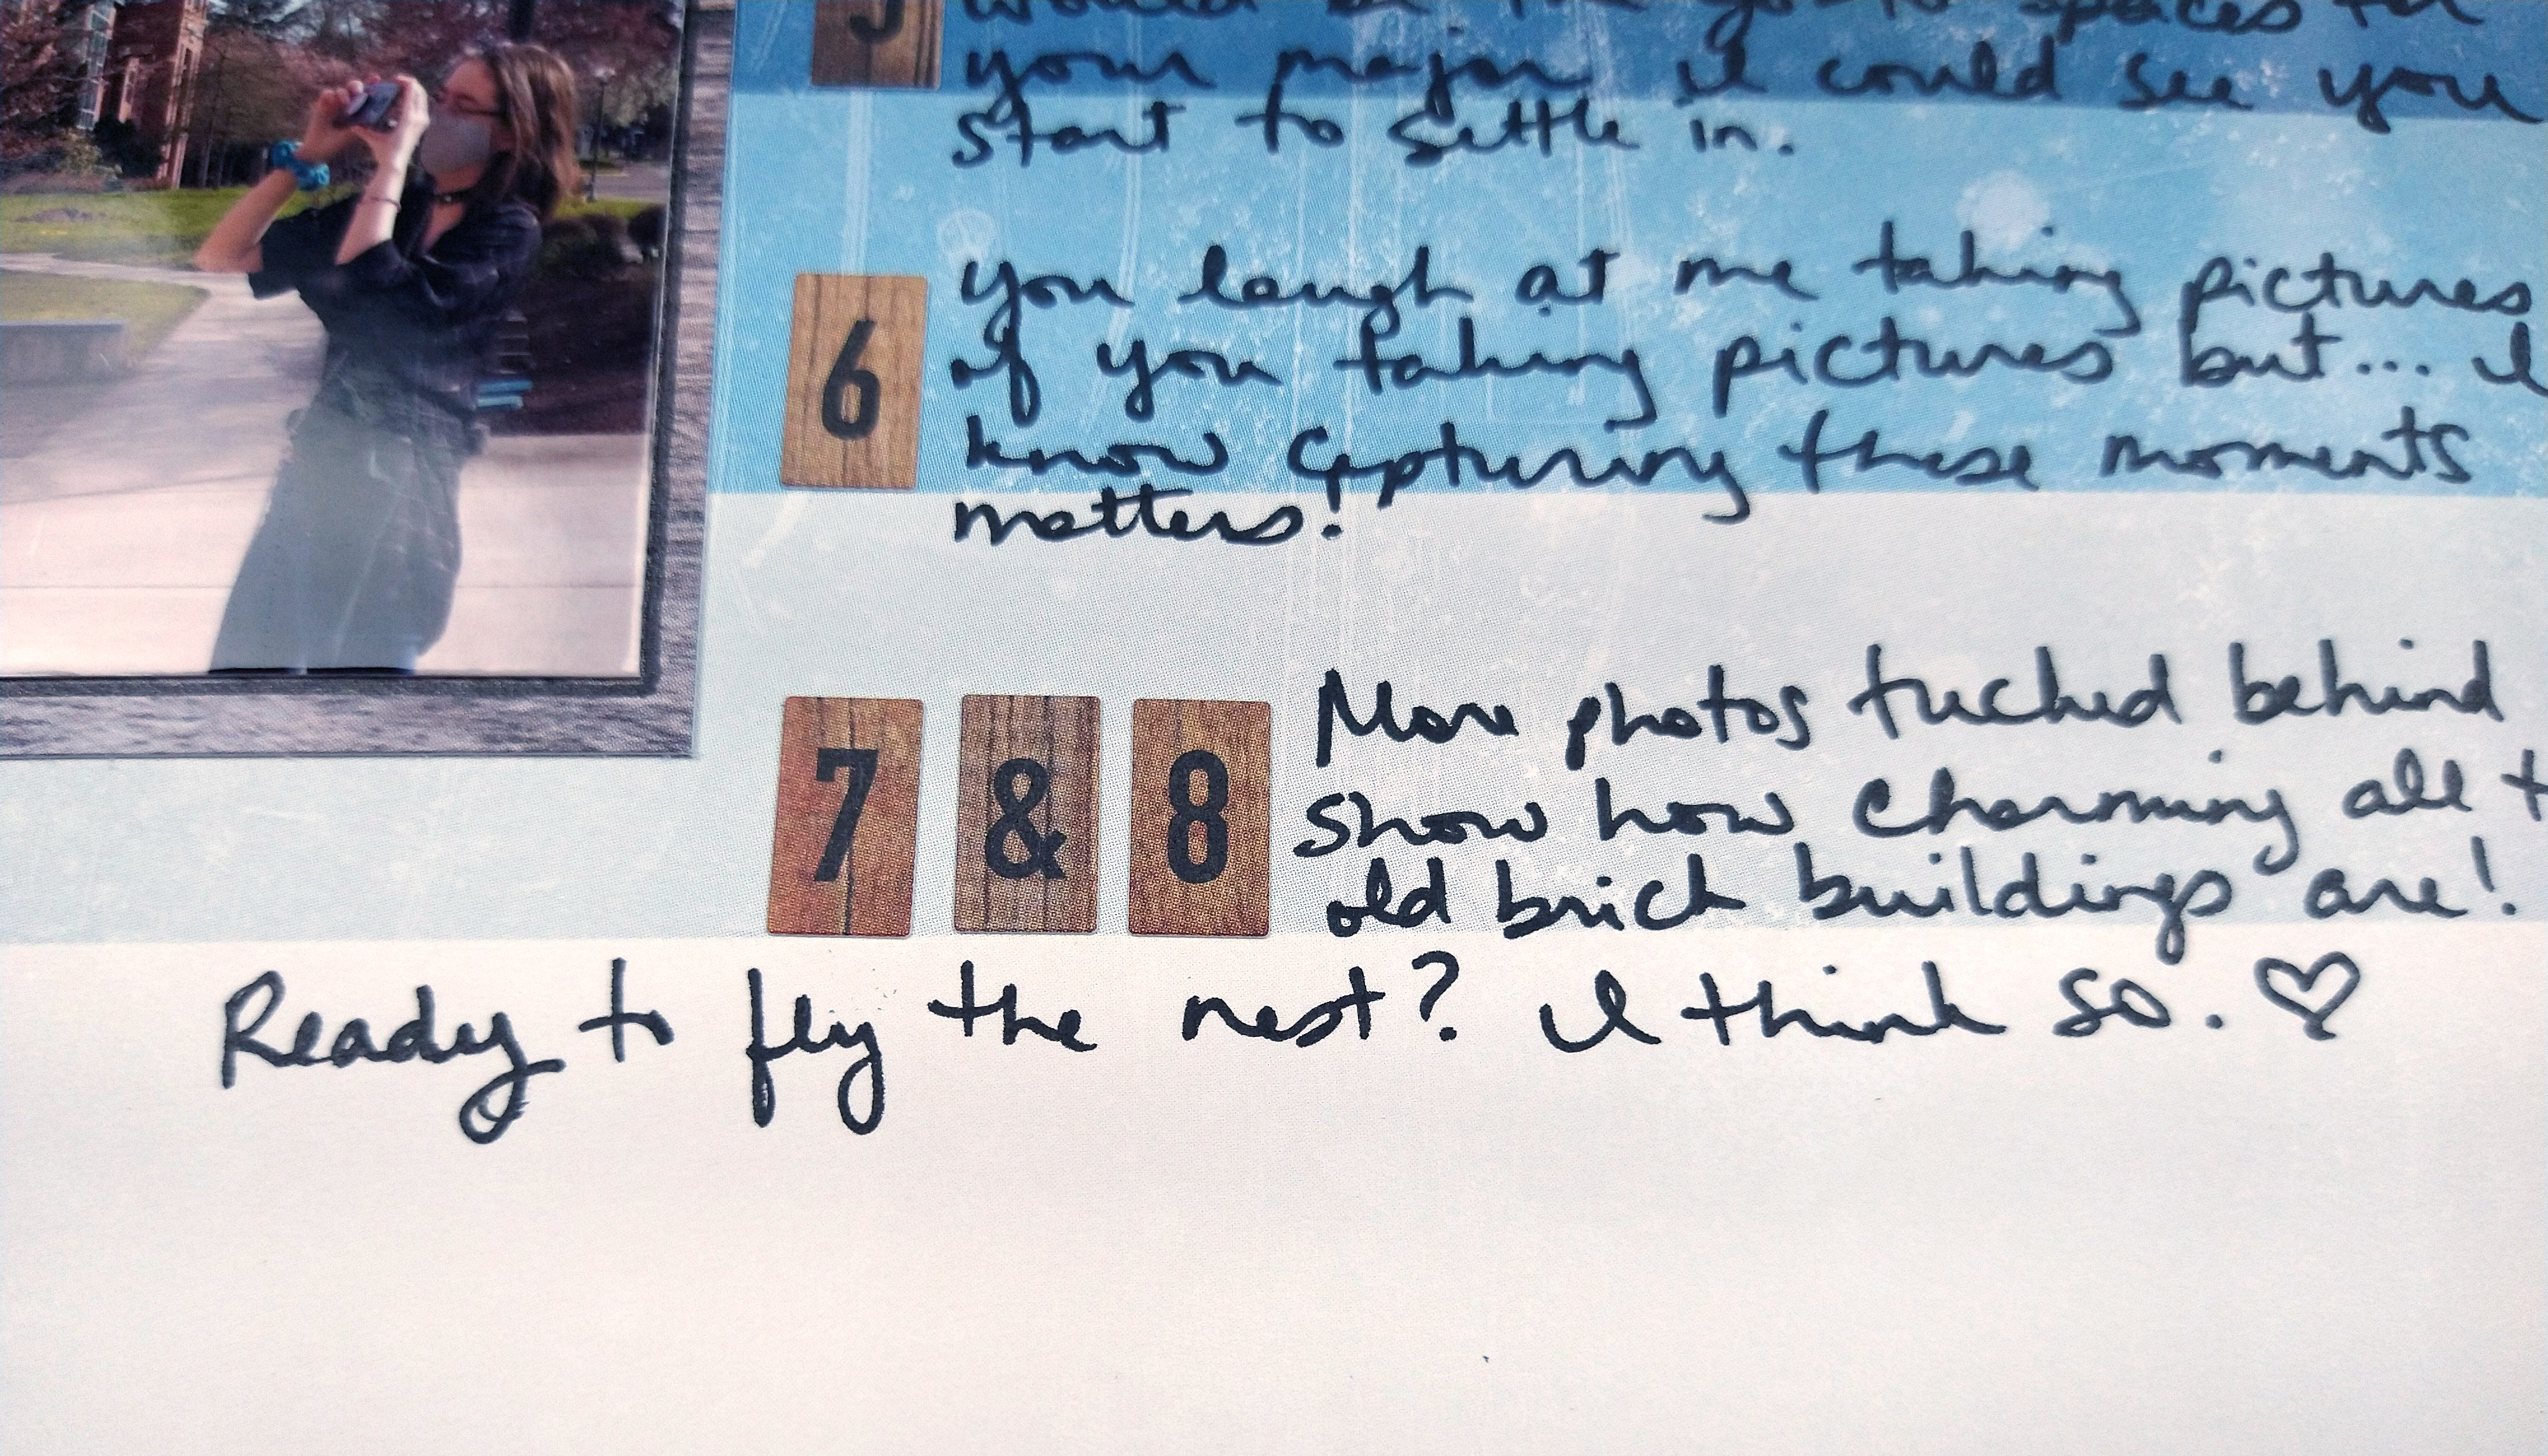 5
your major I could see you
start to settle in.
6
you laugh at me taking pictures
of you taking pictures but... I
know capturing these moments
matters!
7 & 8
More photos tucked behind
show how charming all
old brick buildings are!
Ready to fly the nest? I think so. ♡